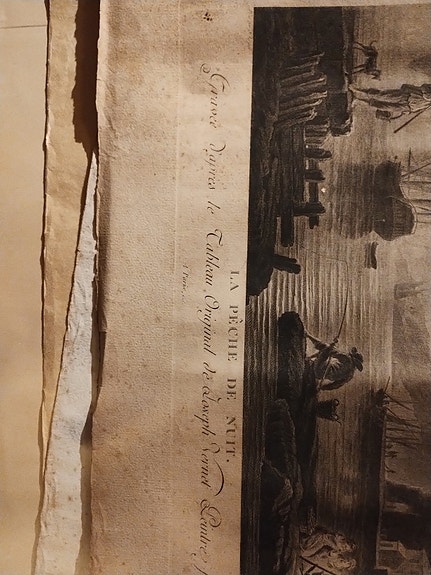 LA PÈCHE DE NUIT.
Gravée d'après le Tableau Original de Joseph Vernet Peintre
A Paris